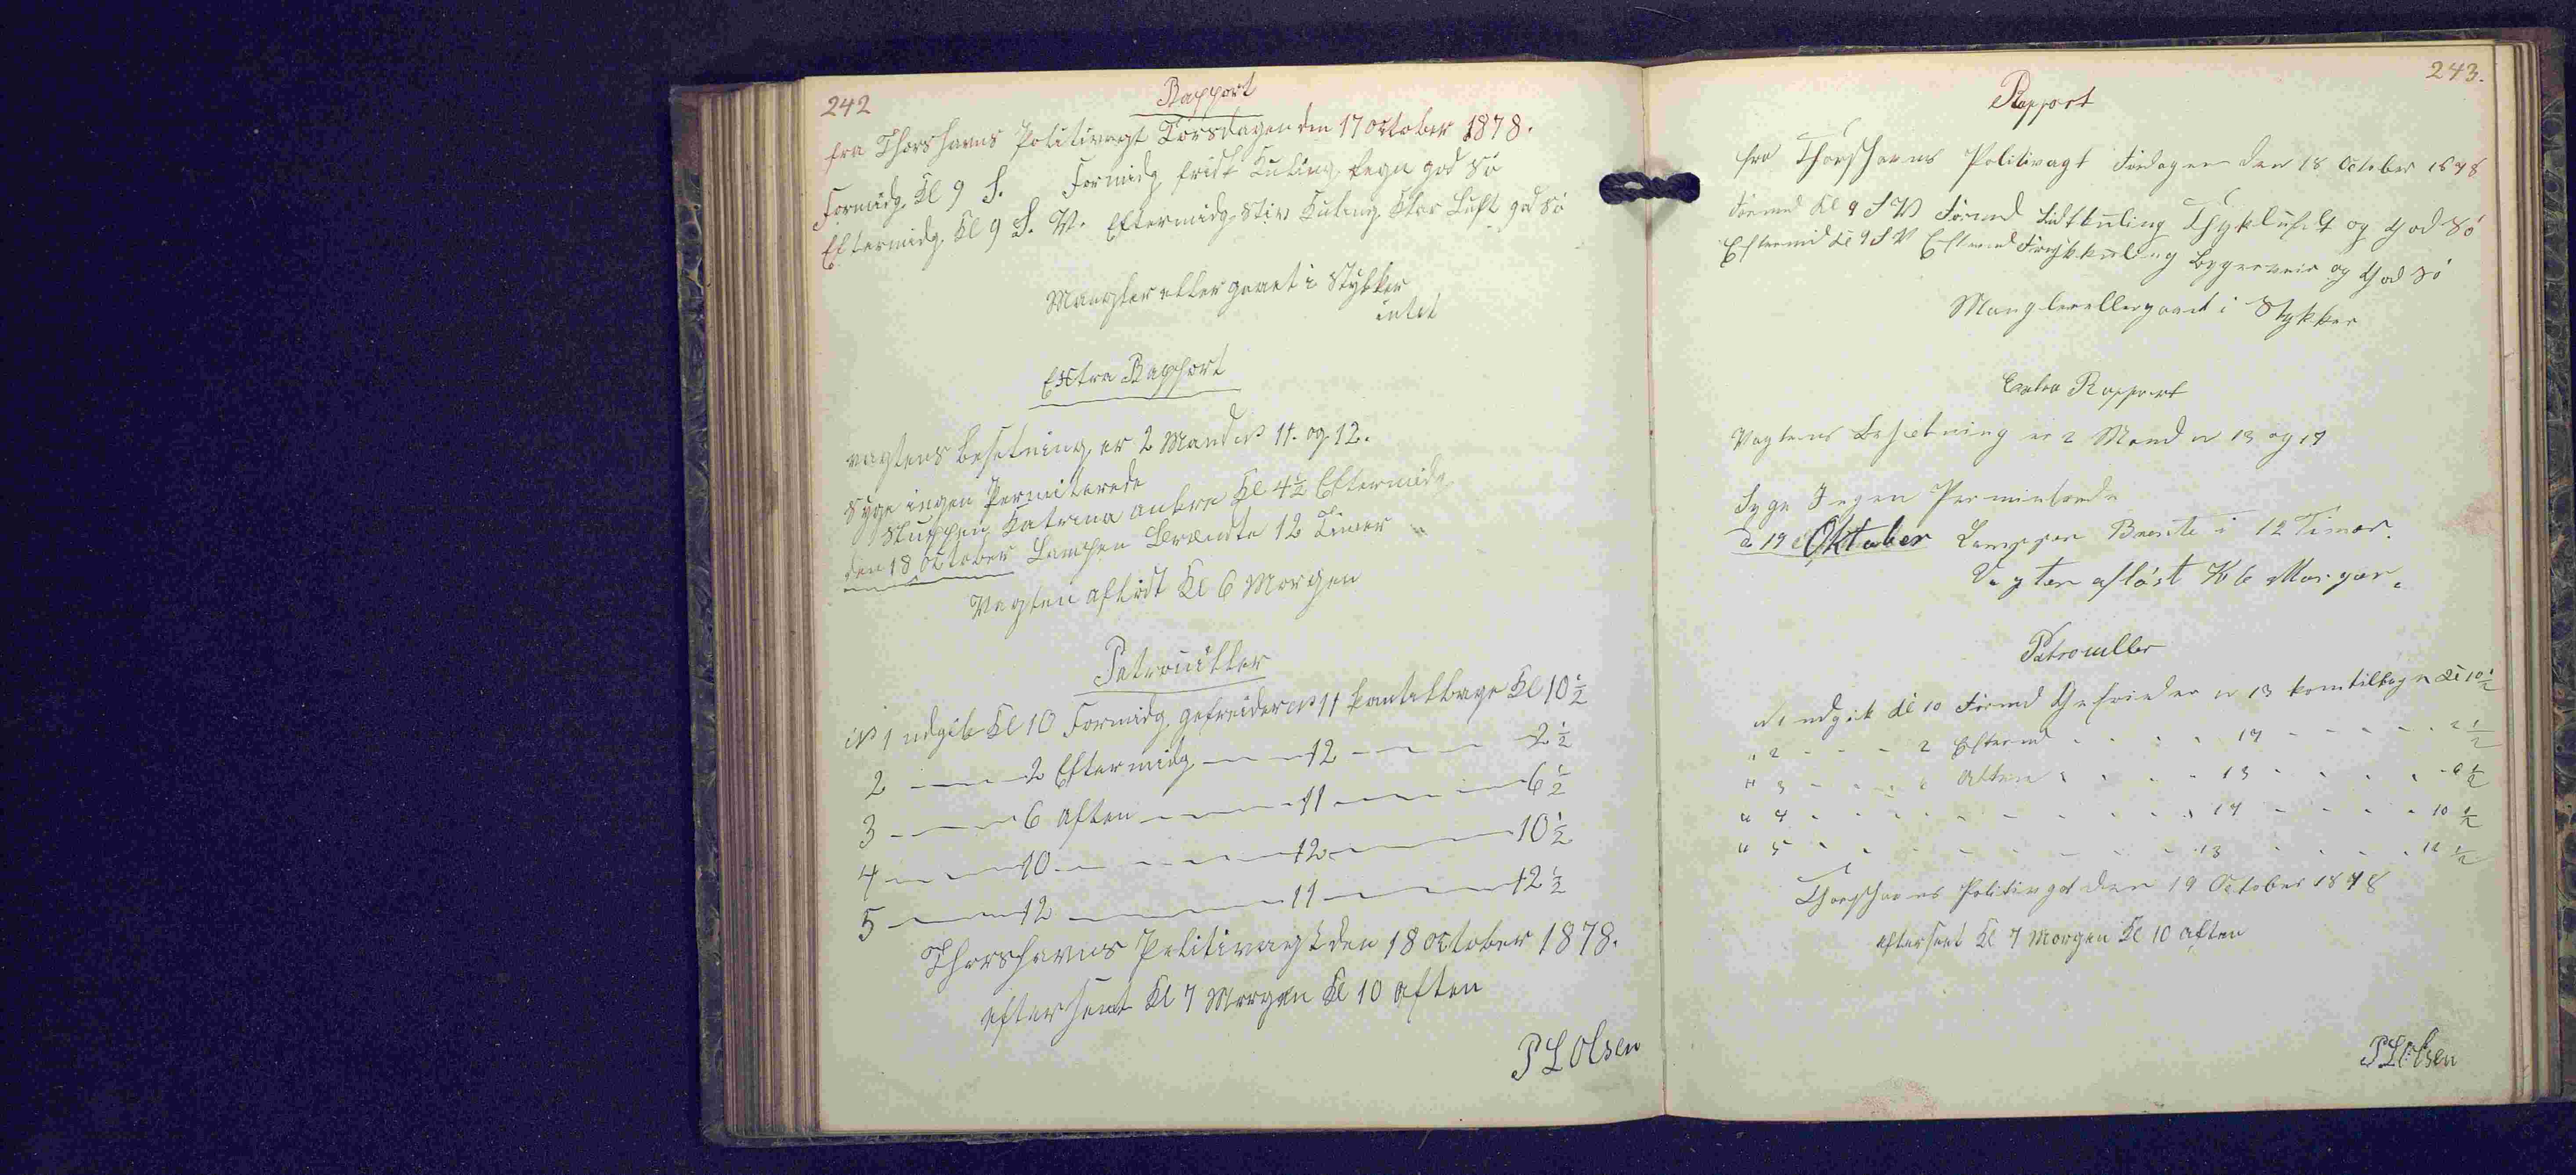 242
Rapport
fra Thorshavns Politivagt Torsdagen den 17 October 1878.
Formidg. Kl 9 S. Formidg frisk Kuling Regn god Sö
Eftermidg Kl 9 S. W. Eftermidg Stiv Kuling Klar Luft god Sö
Mangler eller gaaet i Stykker
intet
Extra Rapport
vagtens besetning er 2 Mand No 11. og 12.
Syge ingen Permiterede
Sluppen Katrina ankre Kl 4½ Eftermidg
den 18 October Lampen Brændte 12 Timer
Vagten aflöst Kl 6 Morgen
Patrouiller
No 1 udgik Kl 10 Formidg. gefreider No 11 kom tilbage Kl 10½
2 — — 2 Eftermidg — — 12 — — — 2½
3 — — 6 Aften — — 11 — — — 6½
4 — — 10 — — — 12 — — 10½
5 — — 12 — — 11 — — 12½
Thorshavns Politivagt den 18 October 1878.
efterseet Kl 7 Morgen Kl 10 Aften
P L Olsen
243.
Rapport
fra Thorshavns Politivagt Fredagen den 18 October 1878
Formd Kl 9 S W Formd Lidtkuling Tykluft og God Sö
Eftermid Kl 9 S V Eftermd Friskkuling Bygeveir og God Sö
Mangler eller gaaet i Stykker
Extra Rapport
Vagtens Besætning er 2 Mand No 13 og 14
Syge Ingen Permiterede
d 19 Oktober Lampen Brente i 12 Timer.
Vagten aflöst Kl 6 Morgen.
Patrouller
No 1 udgik Kl 10 Formd Gefreider No 13 kom tilbage Kl 10½
" 2 - - - 2 Eftermd - - - - 14 - - - - 2½
" 3 - - - 6 Aften - - - - 13 - - - - 6½
" 4 - - - - - - - - 14 - - - - 10½
" 5 - - - - - - - - 13 - - - - 12½
Thorshavns Politivagt den 19 October 1878
efterseet Kl 7 Morgen Kl 10 Aften
P L Olsen